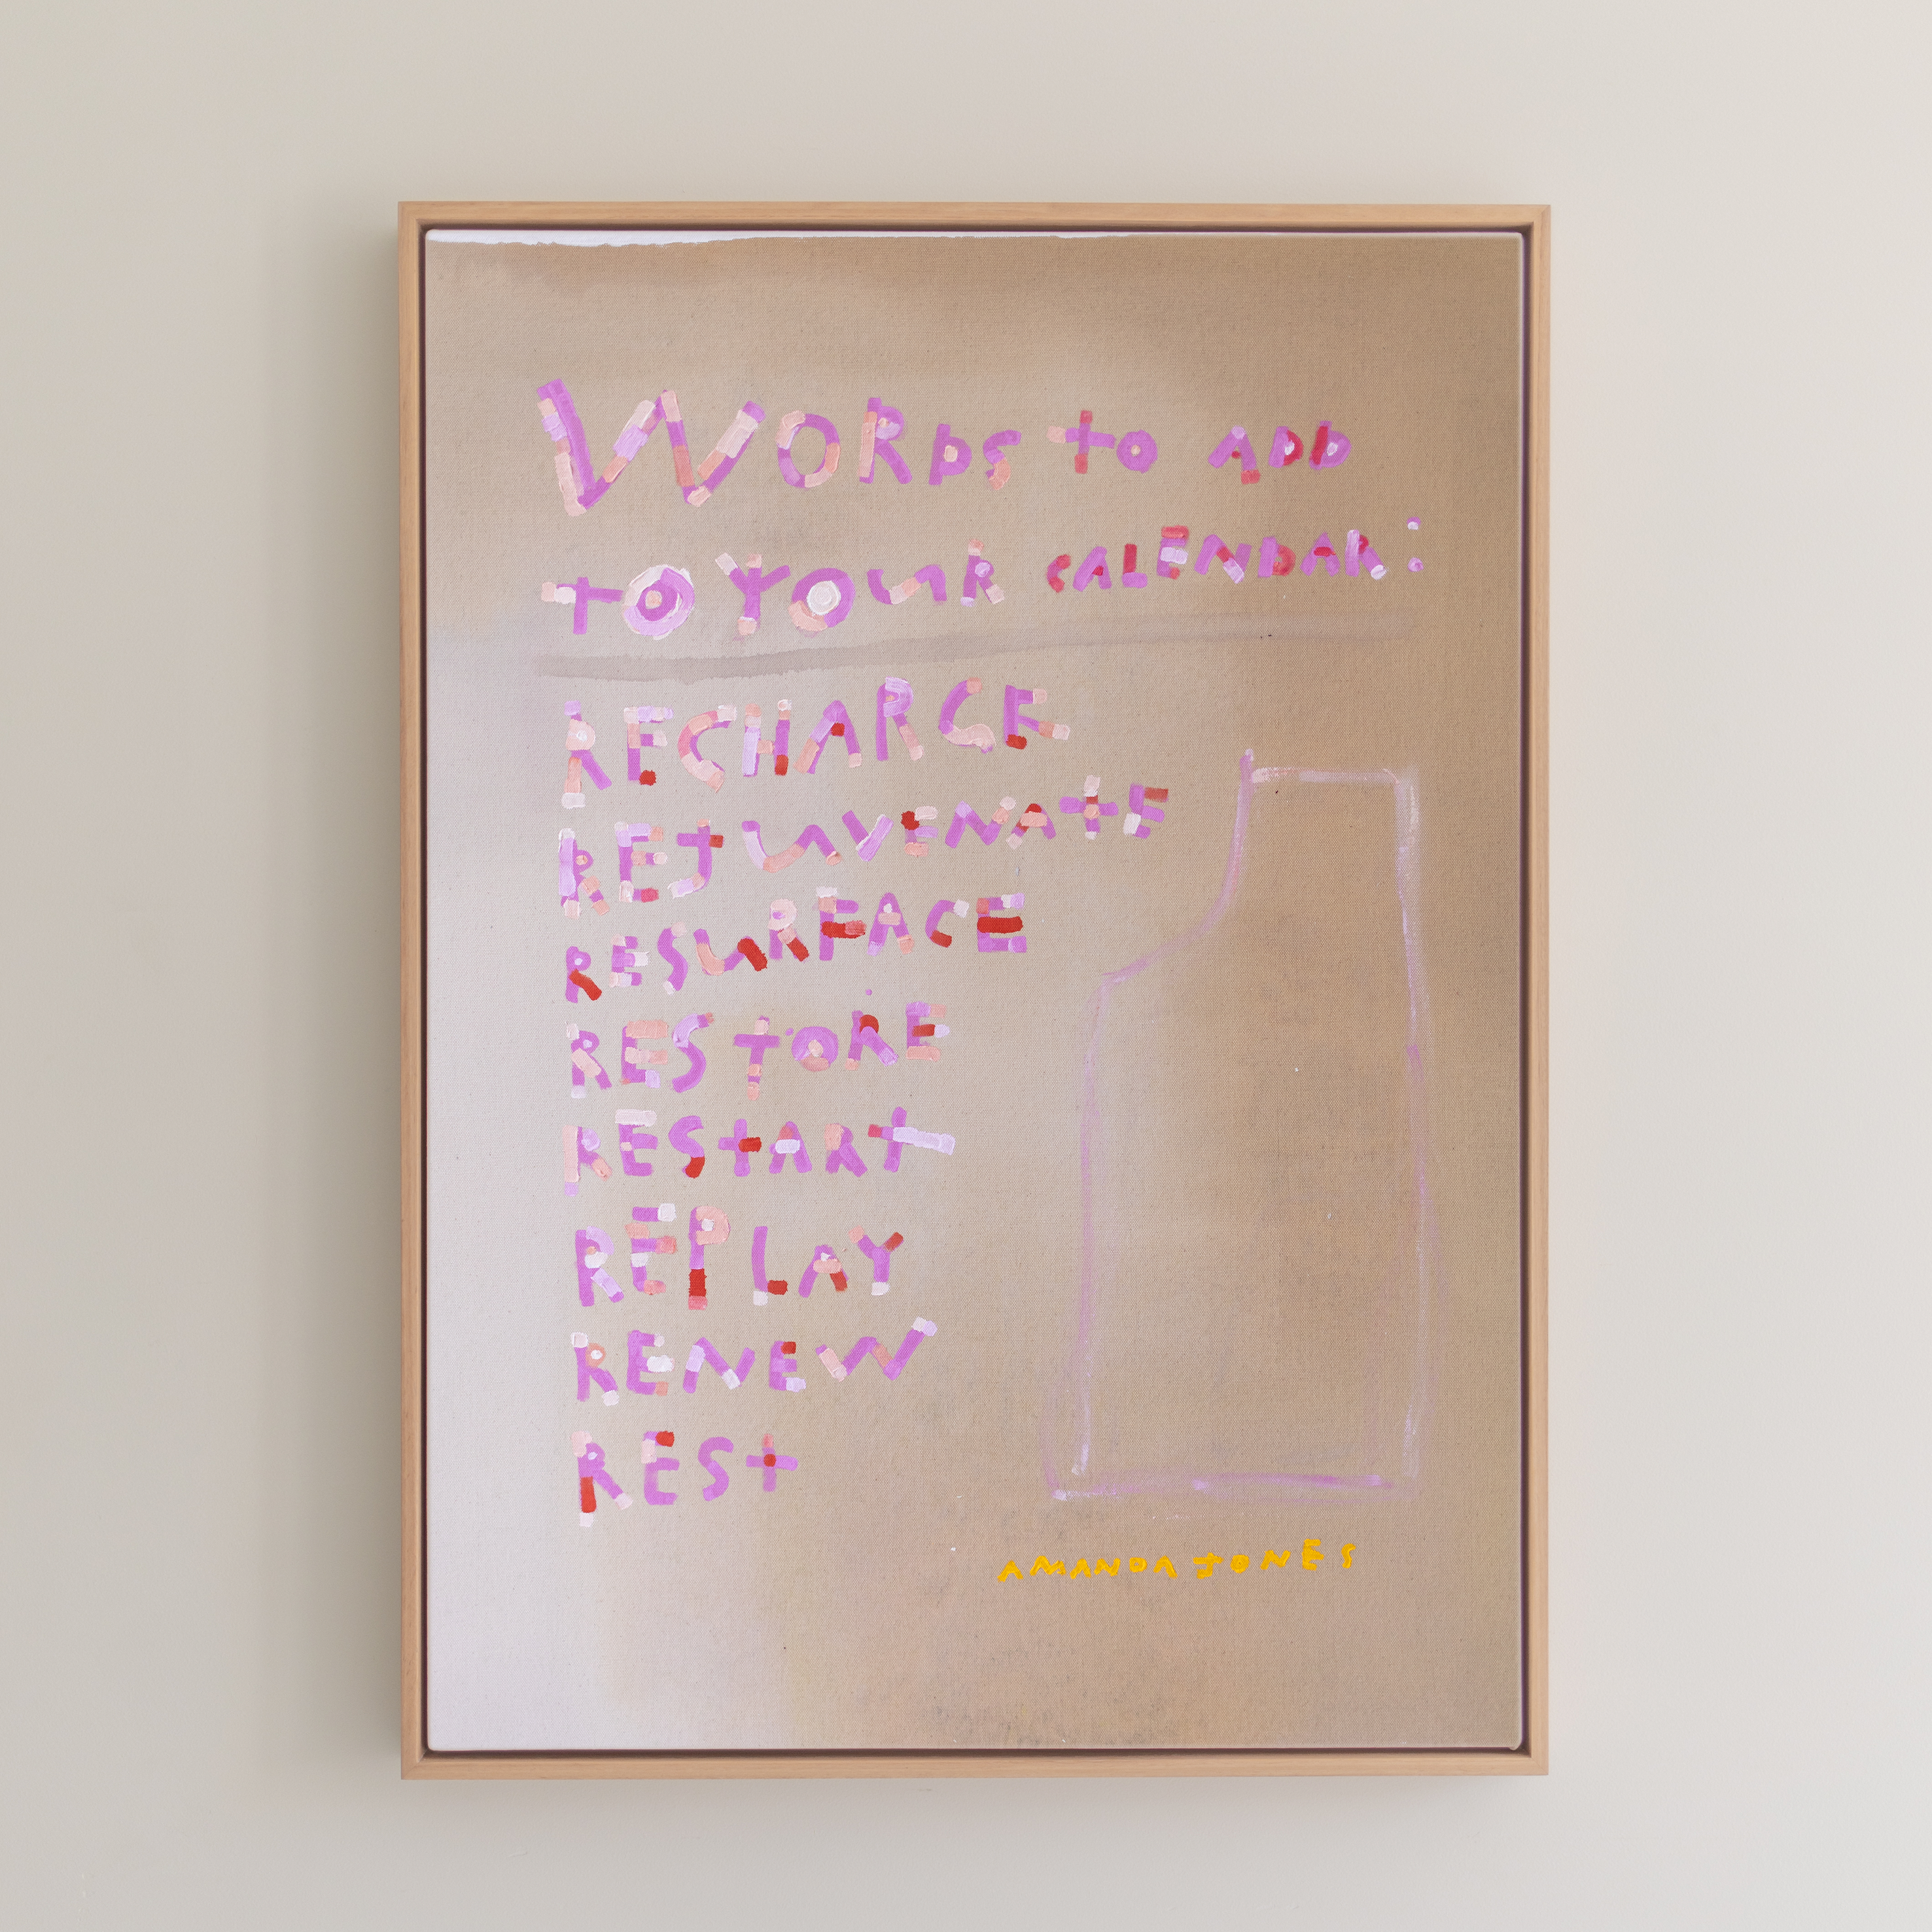 WORDS TO ADD
TO YOUR CALENDAR:
RECHARGE
REJUVENATE
RESURFACE
RESTORE
RESTART
REPLAY
RENEW
REST
AMANDA JONES